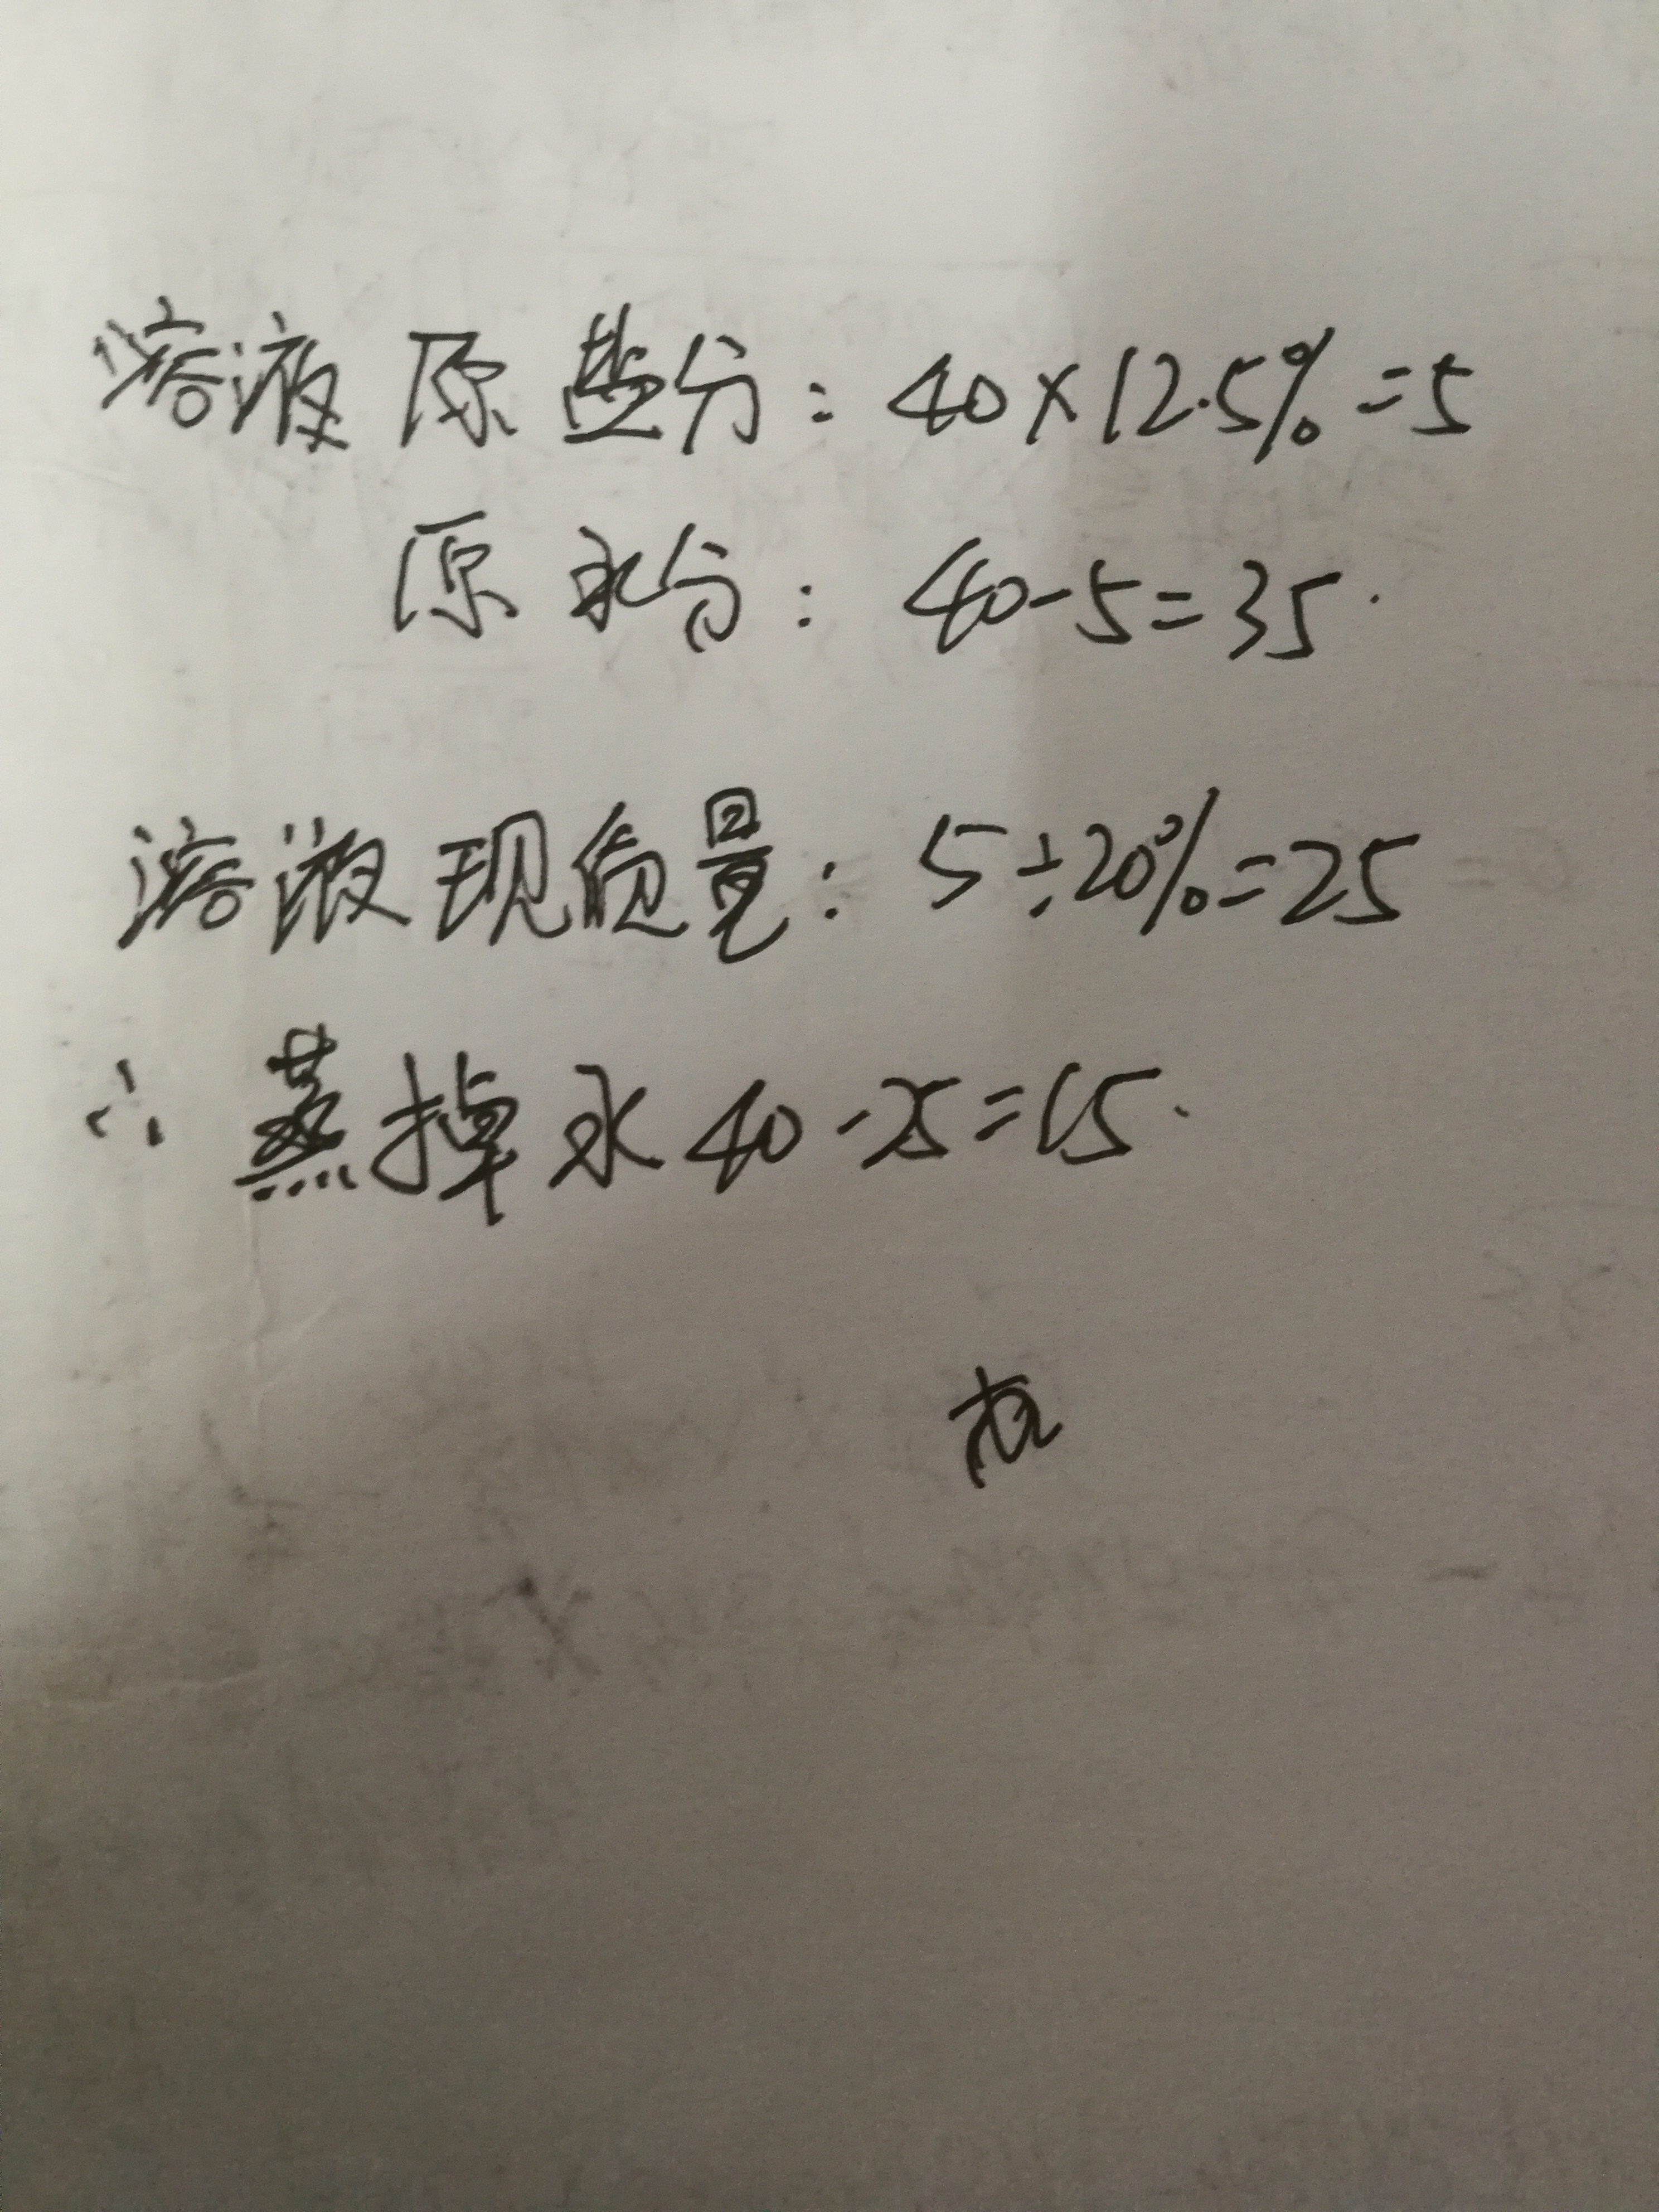 溶液原盐分：40×12.5%=5
原水分：40-5=35.
溶液现质量：5÷20%=25
∴蒸掉水40-25=15.